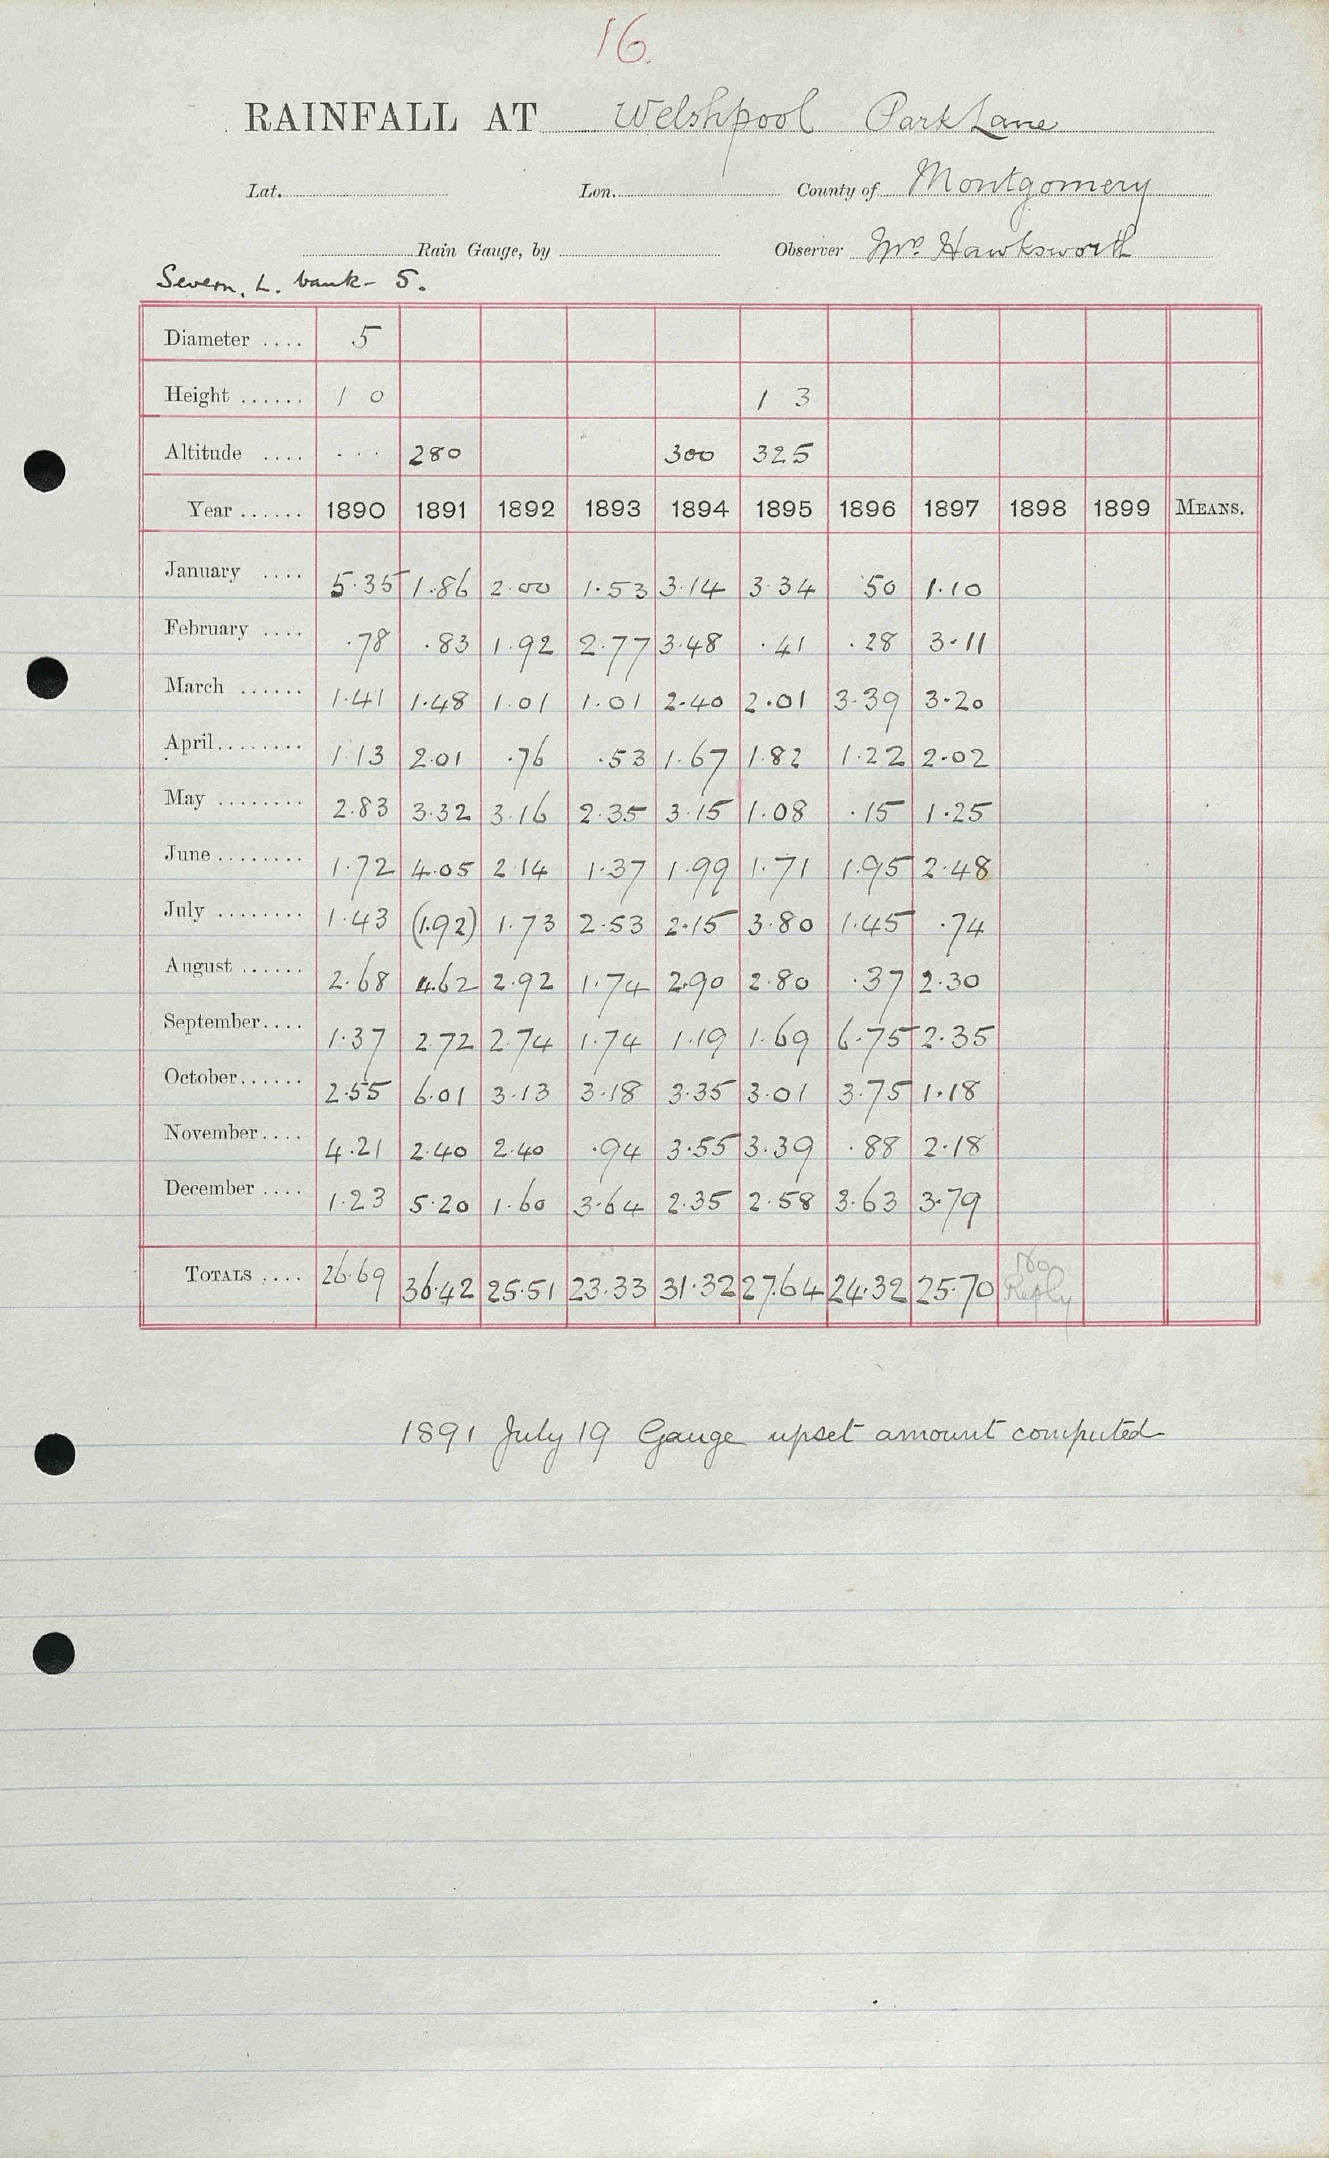 16.
RAINFALL AT Welshpool Park Lane
Lat. Lon. County of Montgomery
Rain Gauge, by Observer Mrs. Hawksworth
Severn, L. bank - 5.
Diameter .... 5
Height ...... 1 0 1 3
Altitude .... ... 280 300 325
Year ...... 1890 1891 1892 1893 1894 1895 1896 1897 1898 1899 MEANS.
January .... 5.35 1.86 2.00 1.53 3.14 3.34 .50 1.10
February .... .78 .83 1.92 2.77 3.48 .41 .28 3.11
March ...... 1.41 1.48 1.01 1.01 2.40 2.01 3.39 3.20
April ........ 1.13 2.01 .76 .53 1.67 1.82 1.22 2.02
May ........ 2.83 3.32 3.16 2.35 3.15 1.08 .15 1.25
June ........ 1.72 4.05 2.14 1.37 1.99 1.71 1.95 2.48
July ........ 1.43 (1.92) 1.73 2.53 2.15 3.80 1.45 .74
August ...... 2.68 4.62 2.92 1.74 2.90 2.80 .37 2.30
September .... 1.37 2.72 2.74 1.74 1.19 1.69 6.75 2.35
October ...... 2.55 6.01 3.13 3.18 3.35 3.01 3.75 1.18
November .... 4.21 2.40 2.40 .94 3.55 3.39 .88 2.18
December .... 1.23 5.20 1.60 3.64 2.35 2.58 3.63 3.79
TOTALS .... 26.69 36.42 25.51 23.33 31.32 27.64 24.32 25.70 No Reply
1891 July 19 Gauge upset amount computed